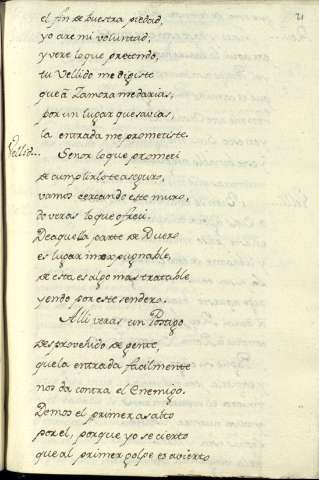 21
el fin de buestra piedad,
yo are mi voluntad,
y vere lo que pretendo,
tu Vellido me digiste
que a Zamora me darias,
por un lugar que savias,
la entrada me prometiste.
Vellid...
Señor lo que prometi
de cumplirlo te aseguro,
vamos cercando este muro,
do veras lo que ofreci.
De aquella parte de Duero
es lugar inexpugnable,
de esta es algo mas tratable
yendo por este sendero.
Alli veras un Postigo
desprovehido de gente,
que la entrada facilmente
nos da contra el Enemigo.
Demos el primer asalto
por el, porque yo se cierto
que al primer golpe es avierto